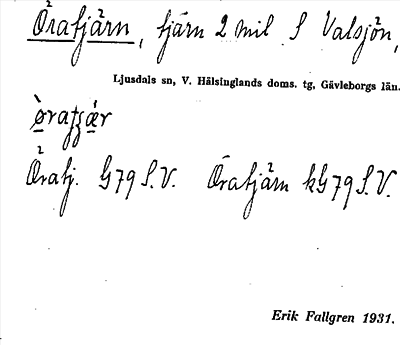 Öratjärn, tjärn 2 mil S Valsjön,
Ljusdals sn, V. Hälsinglands doms. tg, Gävleborgs län.
Öratj. G79 S.V. Öratjärn kG79 S.V.
Erik Fallgren 1931.